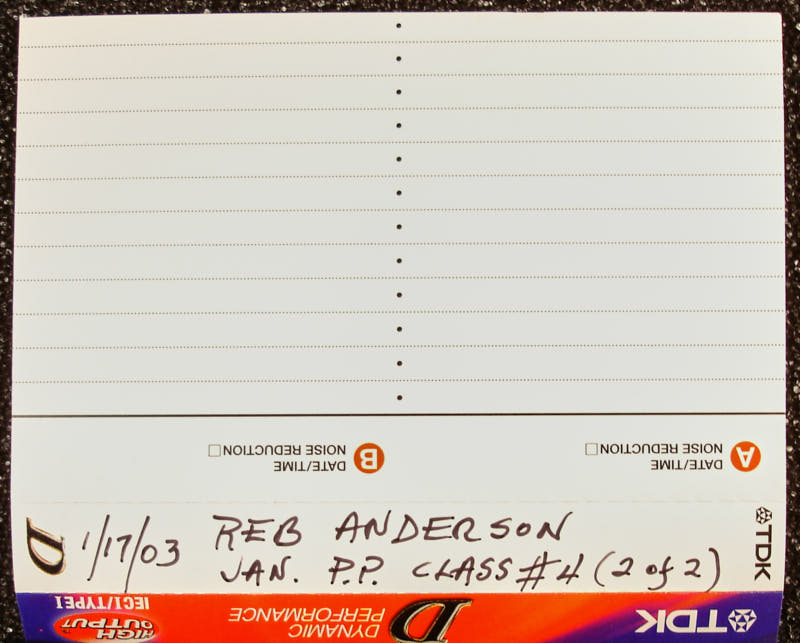 B DATE/TIME
NOISE REDUCTION
A DATE/TIME
NOISE REDUCTION
D 1/17/03 REB ANDERSON
JAN. P.P. CLASS #4 (2 of 2)
TDK
HIGH OUTPUT
IEC I/TYPE I
DYNAMIC PERFORMANCE
D
TDK